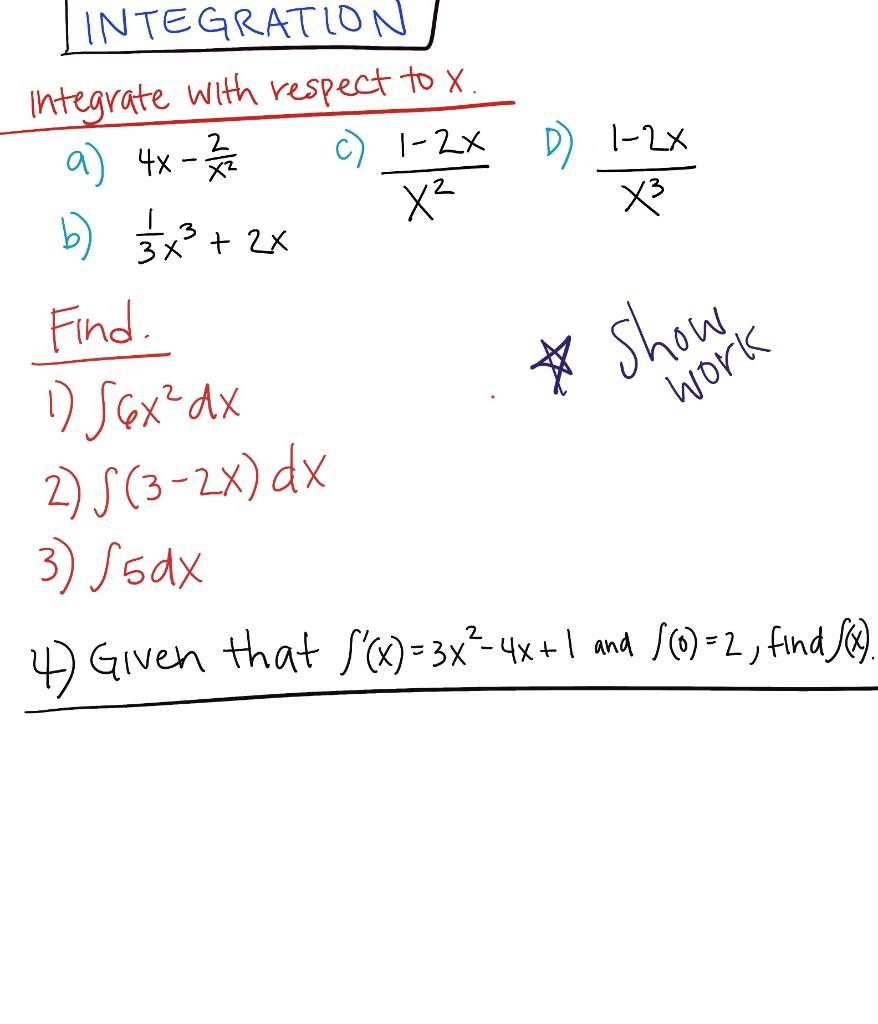 INTEGRATION
Integrate with respect to x.
a) 4x - 2/x²
b) 1/3 x³ + 2x
c) 1-2x / x²
D) 1-2x / x³
Find.
Show
work
1) ∫6x² dx
2) ∫(3-2x) dx
3) ∫5dx
4) Given that f'(x) = 3x² - 4x + 1 and f(0) = 2, find f(x).